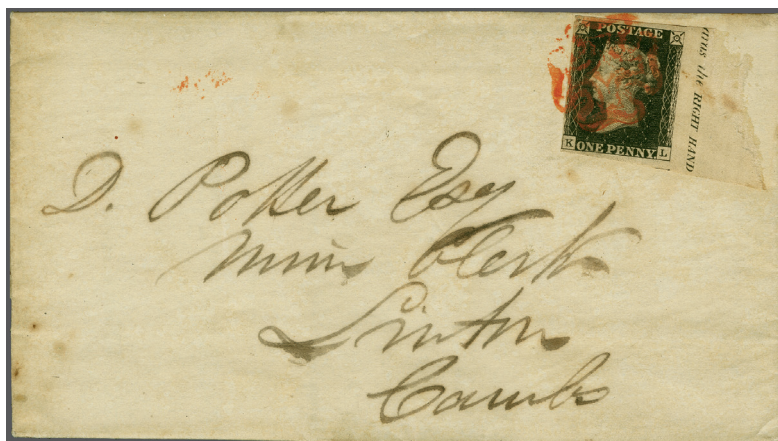 POSTAGE
K ONE PENNY L
the RIGHT HAND
D. Potter Esq
Clerk
Linton
Cambs